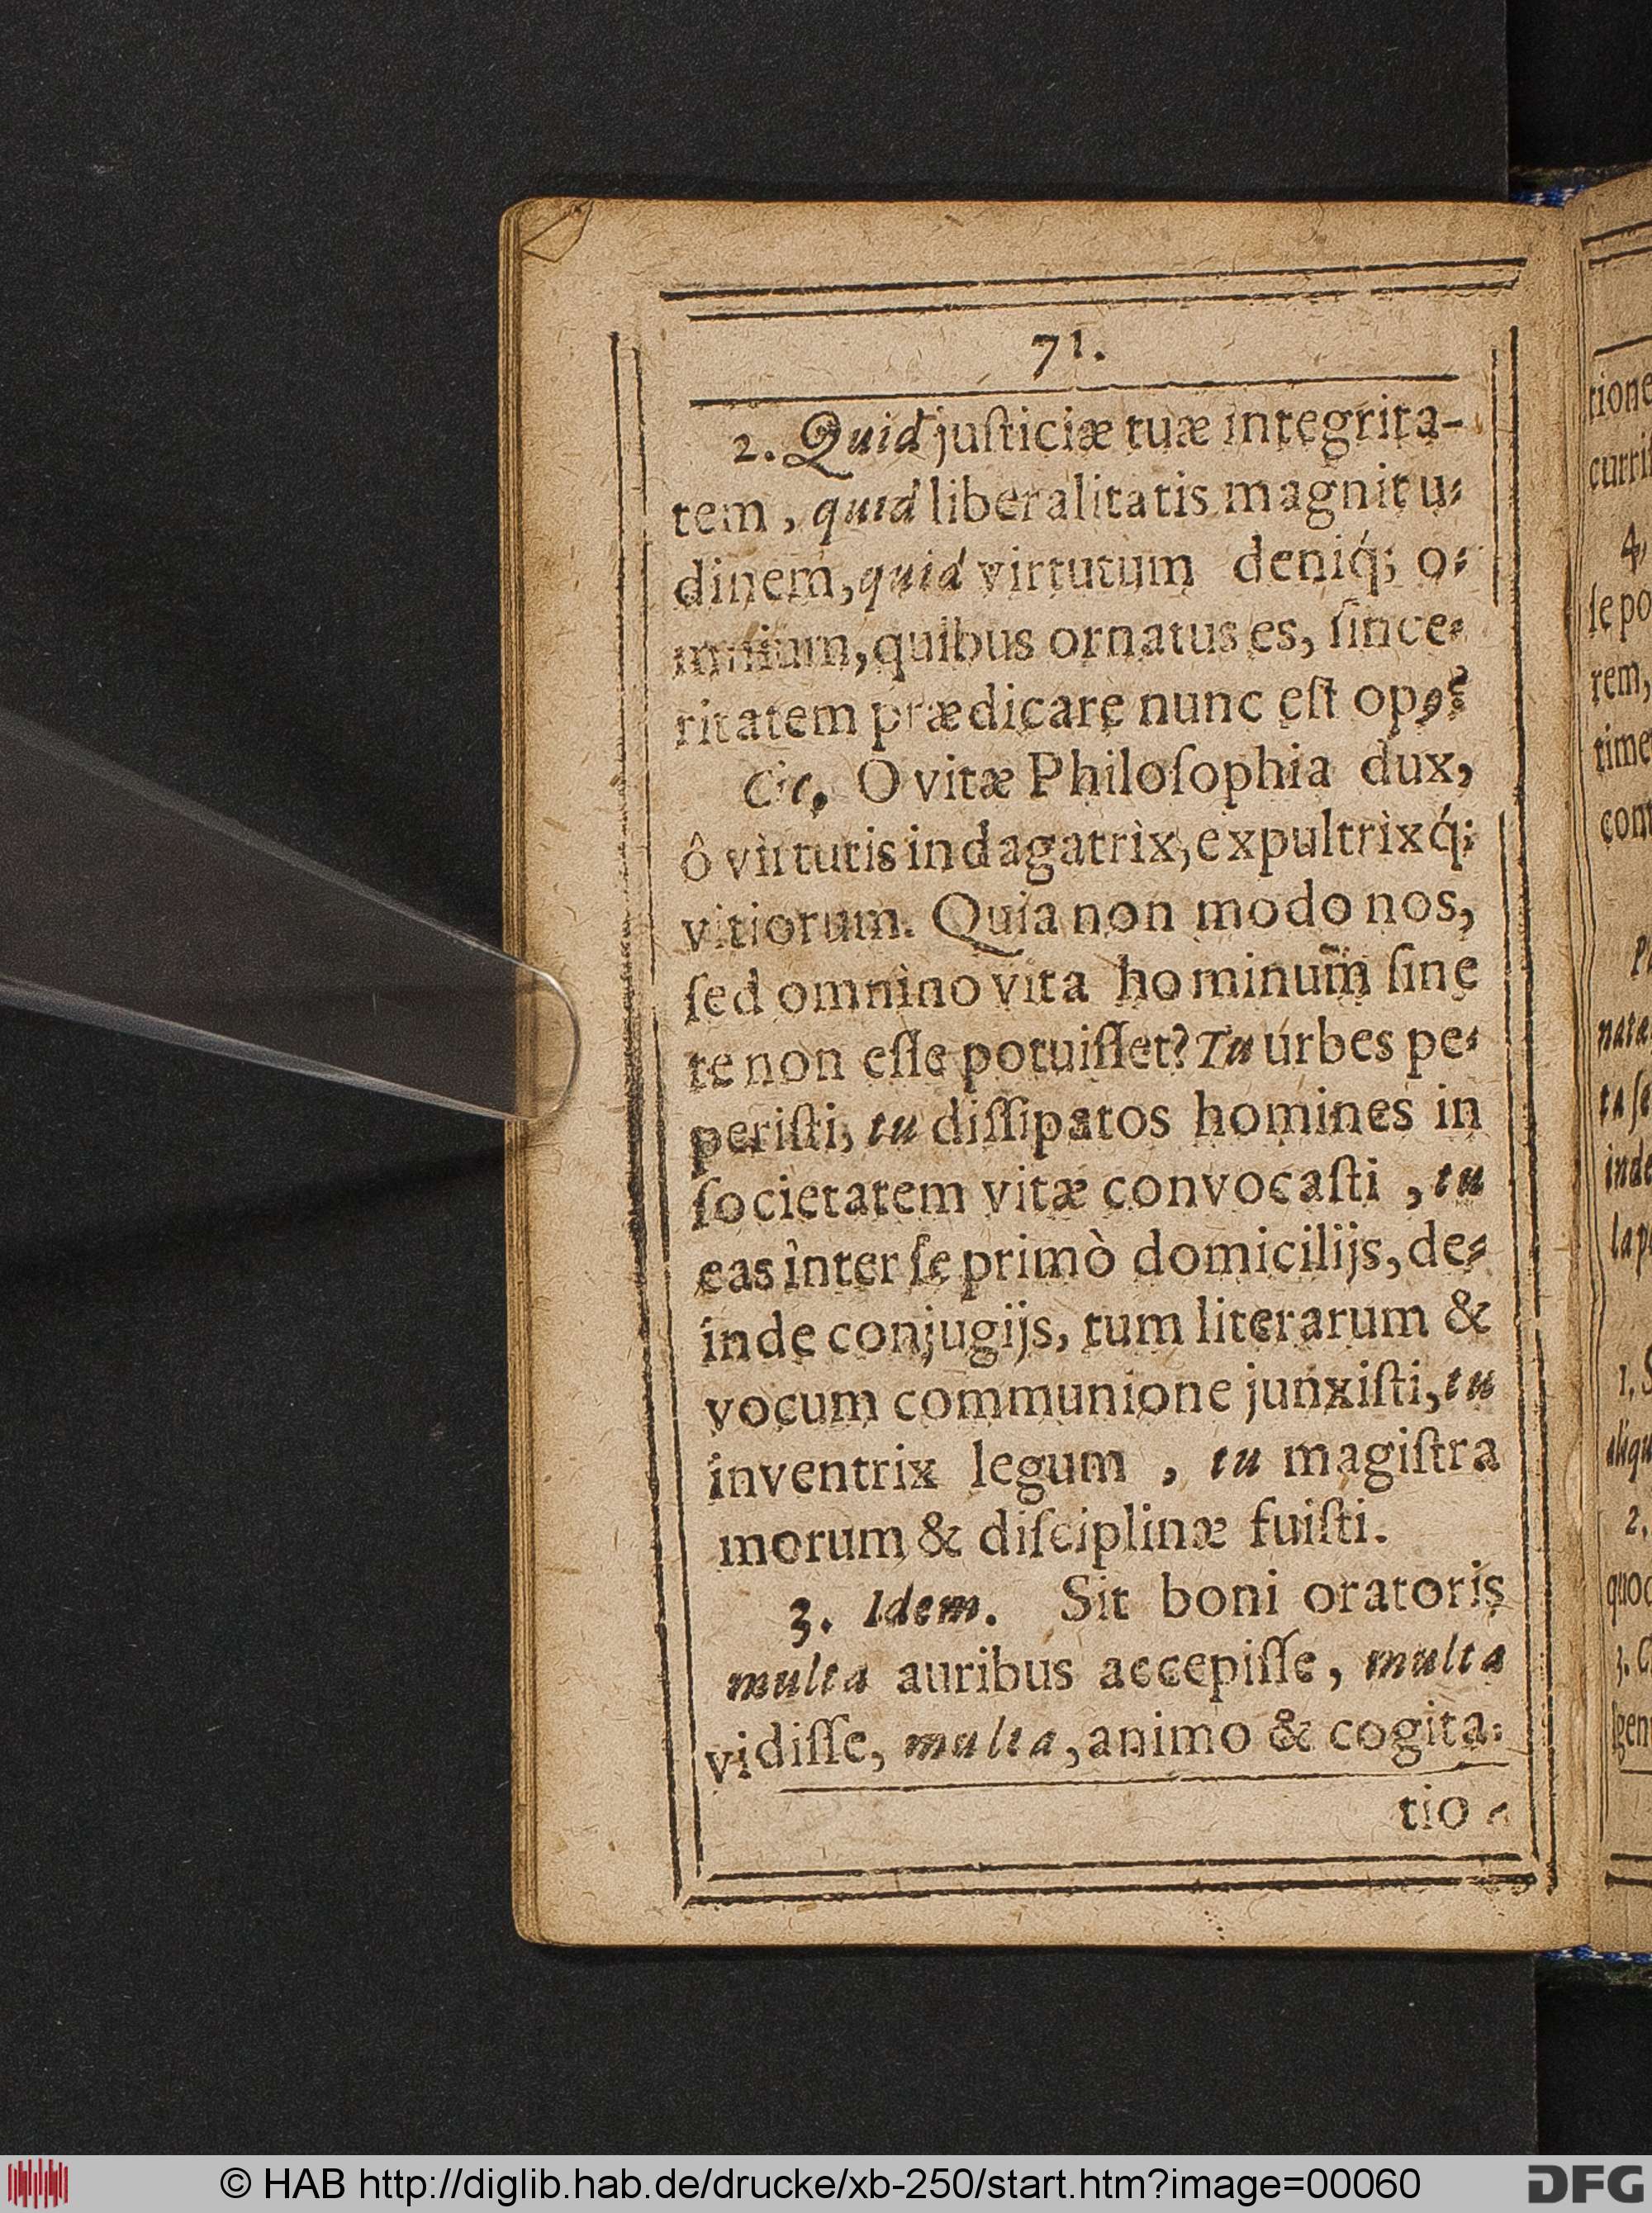 71.
2. Quid juſticiæ tuæ integrita-
tem, quid liberalitatis magnitu-
dinem, quid virtutum deniq́; o-
mnium, quibus ornatus es, ſince-
ritatem prædicare nunc eſt op9?
Cic. O vitæ Philoſophia dux,
ô virtutis indagatrix, expultrixq́;
vitiorum. Quia non modo nos,
ſed omnino vita hominum ſine
te non eſſe potuiſſet? Tu urbes pe-
periſti, tu diſſipatos homines in
ſocietatem vitæ convocaſti, tu
eas inter ſe primò domicilijs, de-
inde conjugijs, tum literarum &
vocum communione junxiſti, tu
inventrix legum, tu magiſtra
morum & diſciplinæ fuiſti.
3. Idem. Sit boni oratoris
multa auribus accepiſſe, multa
vidiſſe, multa, animo & cogita-
tio-
rione
currit
4,
ſe po
rem,
time
con
nata
ta ſe
inde
lap
1. S
aliqu
2,
quoc
3. C
gen
© HAB http://diglib.hab.de/drucke/xb-250/start.htm?image=00060
DFG